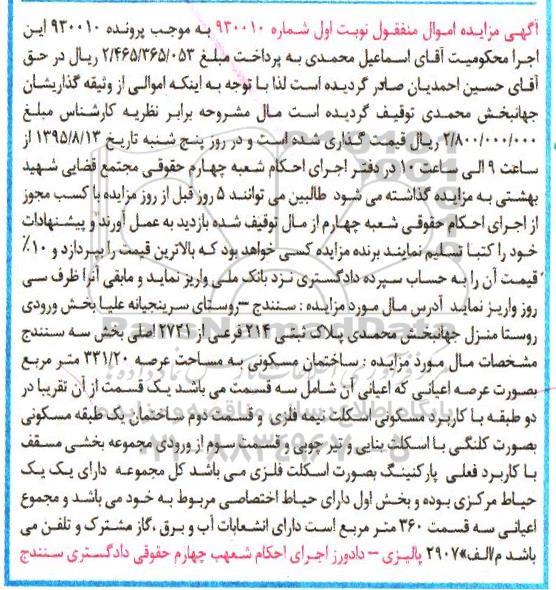 آگهی مزایده اموال منفقول نوبت اول شماره ۹۳۰۰۱۰ به موجب پرونده ۹۳۰۰۱۰ این
اجرا محکومیت آقای اسماعیل محمدی به پرداخت مبلغ ۲/۴۶۵/۳۶۵/۰۵۳ ریال در حق
آقای حسین احمدیان صادر گردیده است لذا با توجه به اینکه اموالی از وثیقه گذاریشان
جهانبخش محمدی توقیف گردیده است مال مشروحه برابر نظریه کارشناس مبلغ
۲/۸۰۰/۰۰۰/۰۰۰ ریال قیمت گذاری شده است و در روز پنج شنبه تاریخ ۱۳۹۵/۸/۱۳ از
ساعت ۹ الی ساعت ۱۰ در دفتر اجرای احکام شعبه چهارم حقوقی مجتمع قضایی شهید
بهشتی به مزایده گذاشته می شود طالبین می توانند ۵ روز قبل از روز مزایده با کسب مجوز
از اجرای احکام حقوقی شعبه چهارم از مال توقیف شده بازدید به عمل آورند و پیشنهادات
خود را کتبا تسلیم نمایند برنده مزایده کسی خواهد بود که بالاترین قیمت را بپردازد و ۱۰٪
قیمت آن را به حساب سپرده دادگستری نزد بانک ملی واریز نماید و مابقی آنرا ظرف سی
روز واریز نماید آدرس مال مورد مزایده : سنندج – روستای سرینجیانه علیا بخش ورودی
روستا منزل جهانبخش محمدی پلاک ثبتی ۲۱۴ فرعی از ۲۷۳۱ اصلی بخش سه سنندج
مشخصات مال مورد مزایده : ساختمان مسکونی به مساحت عرصه ۳۳۱/۲۰ متر مربع
بصورت عرصه اعیانی که اعیانی آن شامل سه قسمت می باشد یک قسمت از آن تقریبا در
دو طبقه با کاربرد مسکونی اسکلت نیمه فلزی و قسمت دوم ساختمان یک طبقه مسکونی
بصورت کلنگی با اسکلت بنایی و تیر چوبی و قسمت سوم از ورودی مجموعه بخشی مسقف
با کاربرد فعلی پارکینگ بصورت اسکلت فلزی می باشد کل مجموعه دارای یک یک
حیاط مرکزی بوده و بخش اول دارای حیاط اختصاصی مربوط به خود می باشد و مجموع
اعیانی سه قسمت ۳۶۰ متر مربع است دارای انشعابات آب و برق ،گاز مشترک و تلفن می
باشد م/الف» ۲۹۰۷ پالیزی – دادورز اجرای احکام شعهب چهارم حقوقی دادگستری سنندج